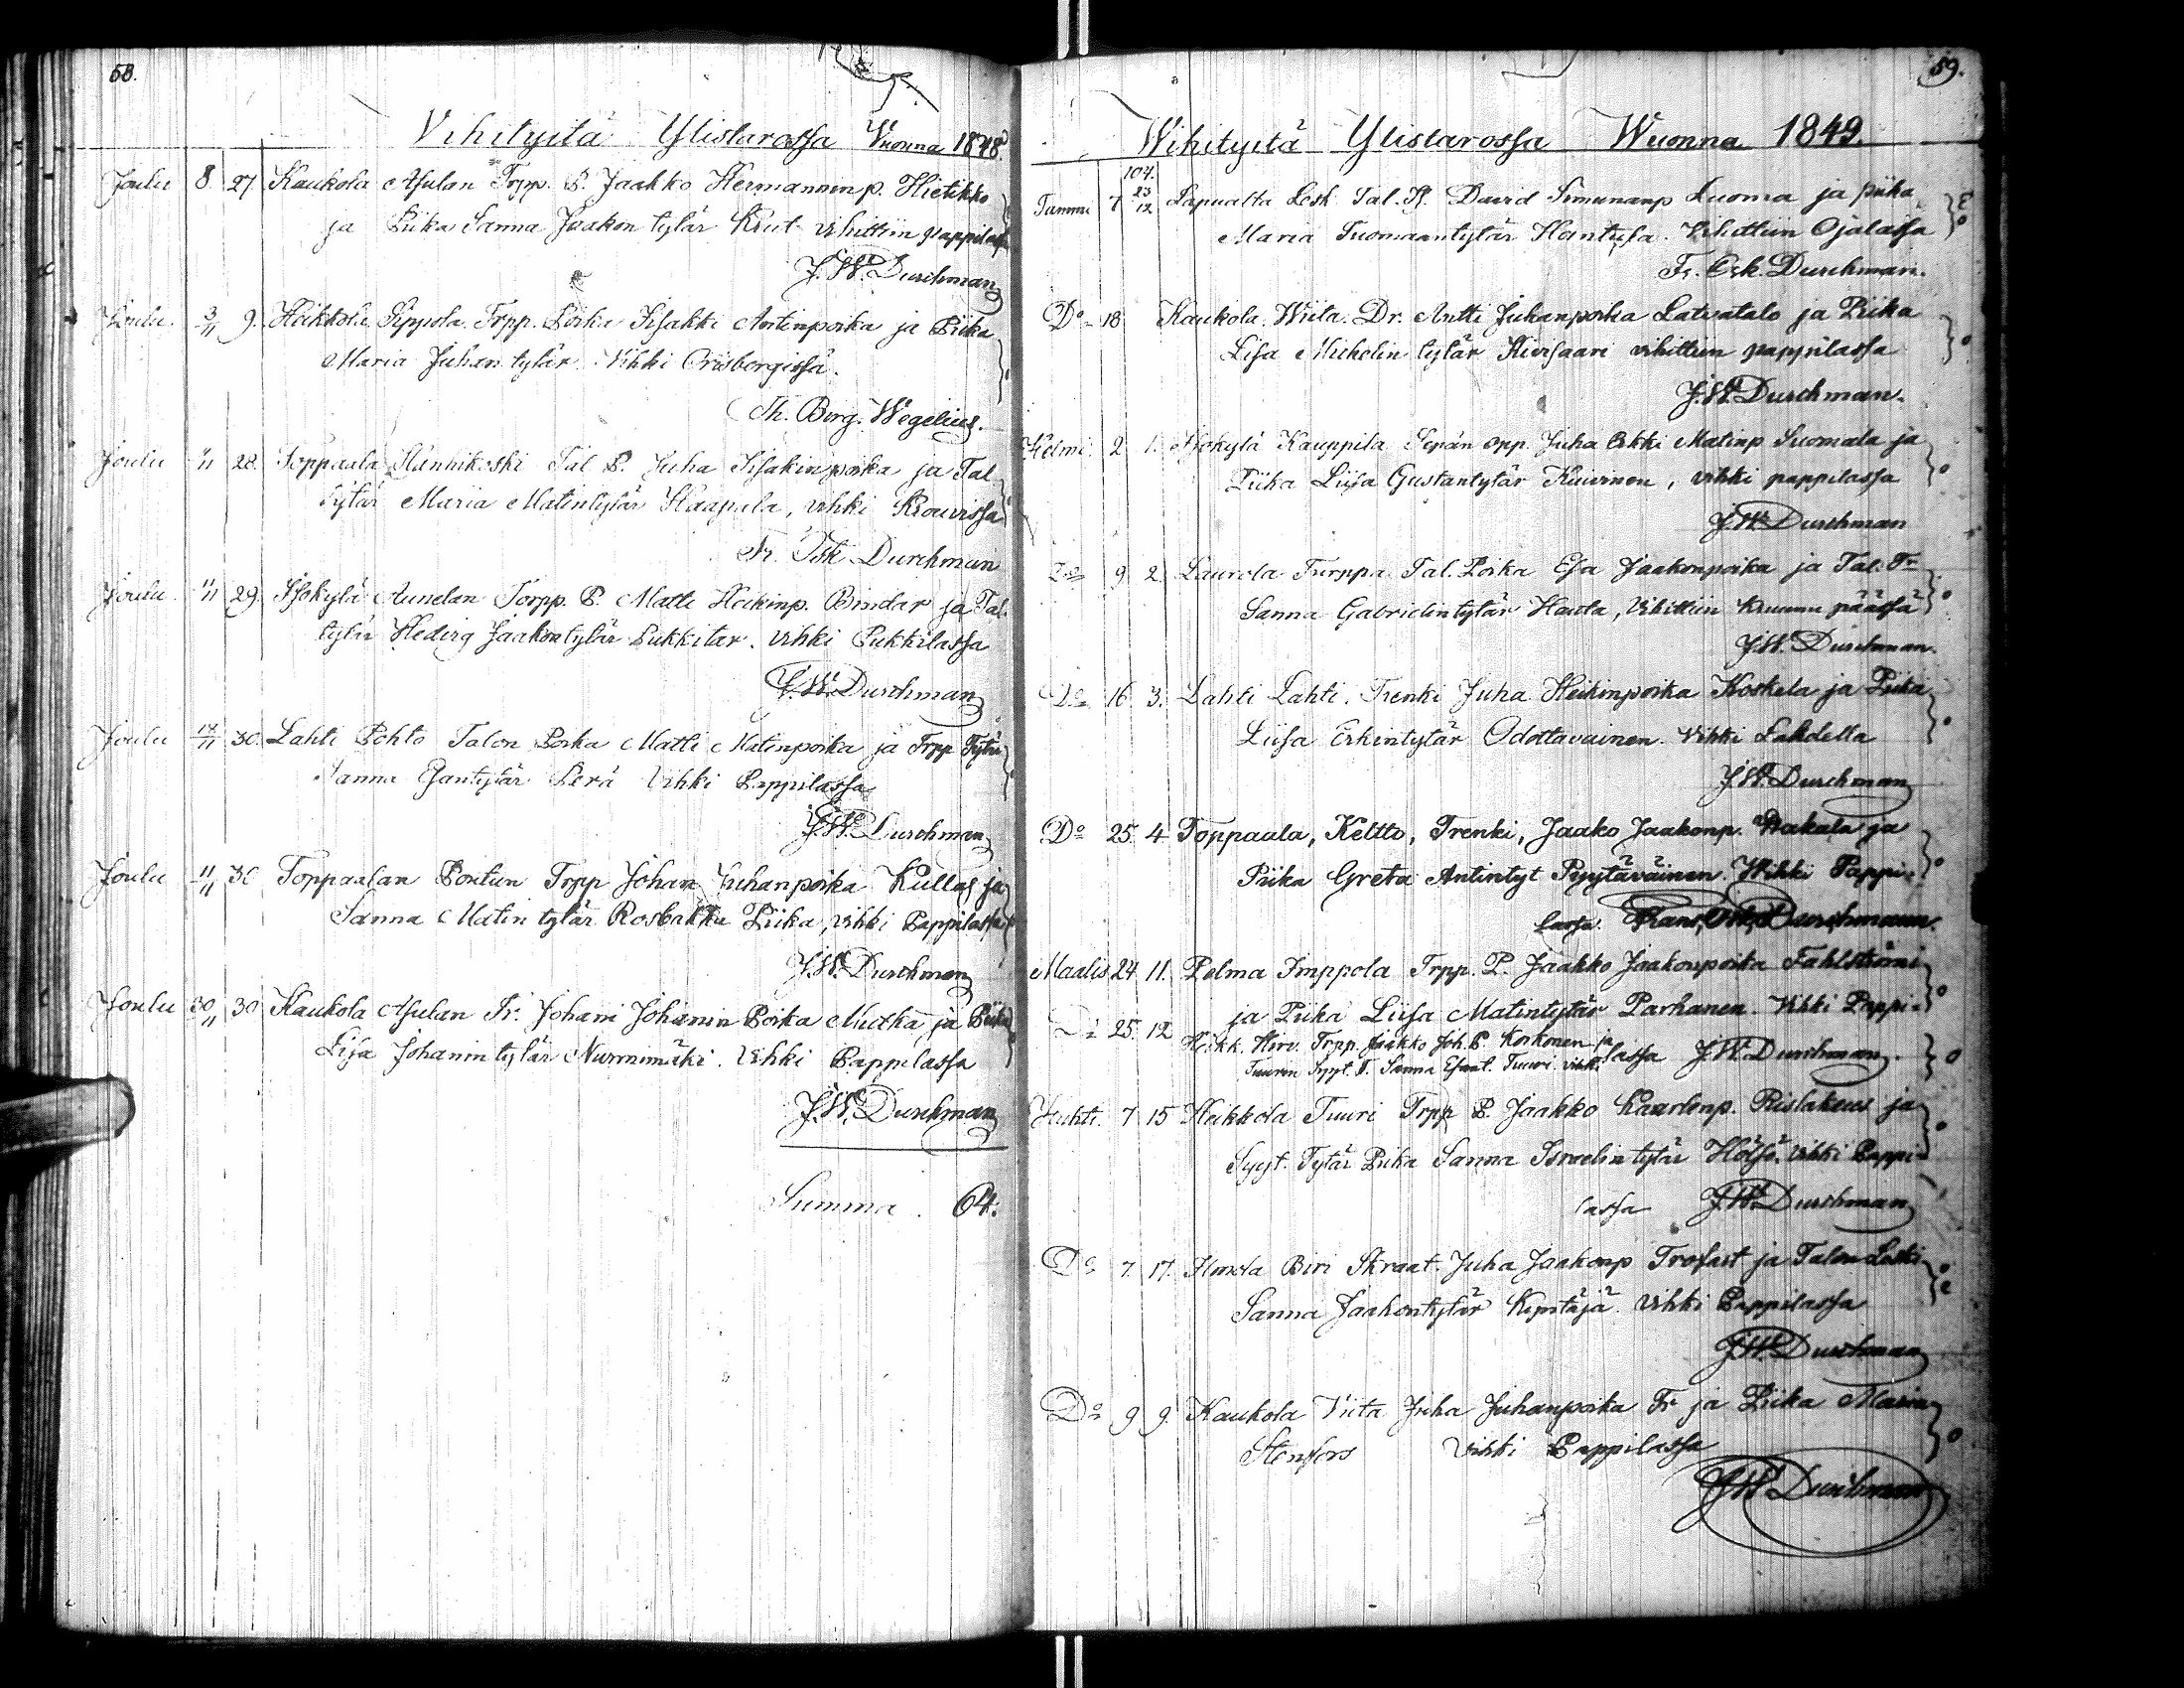 58.
Vihityitä Ylistarossa Vuonna 1848
Joulu 8 27 Kaukola Asulan Trpp. P. Jaakko Hermannin p. Hietikko
ja Piika Sanna Jaakon tytär Knut vihittiin pappilassa
J.W. Durchman
Joulu 3/11 9. Heikkola Sippola Trpp. Poika Iisakki Antinpoika ja Piika
Maria Juhan tytär Vihki Orisbergissä.
Th. Berg. Wegelius.
Joulu 28. Toppaala Hanhikoski Tal P. Juha Iisakinpoika ja Tal.
Tytär Maria Matintytär Haapala, vihki Krouvissa
Fr. Osk Durchman
Joulu 29. Isokylä Aunelan Torpp. P. Matti Heikinp. Bindar ja Tal.
tytär Hedvig Jaakontytär Pukkitar. Vihki Pukkilassa
J.W. Durchman
Joulu 30. Lahti Pohto Talon Poika Matti Matinpoika ja Trpp Tytär
Sanna Esantytär Perä Vihki Pappilassa
J.W. Durchman
Joulu 30 Toppaalan Pontun Trpp Johan Juhanpoika Kullas ja
Sanna Matin tytär Rosbakka Piika, vihki Pappilassa
J.W. Durchman
Joulu 30/11 30 Kaukola Asulan Tr. Johani Johanin Poika Mutka ja Piika
Lisa Johanin tytär Nurmimäki. Vihki Pappilassa
J.W. Durchman
Summa 64.
59.
Wihityitä Ylistarossa Wuonna 1849.
104.
Tammi 7 23/12 Lapualta Lesk. Tal. P. David Simunanp Luoma ja piika
Maria Tuomaantytär Hantula. Vihittiin Ojalassa
Fr. Osk. Durchman.
Do 18 Kaukola. Wiita. Dr. Antti Juhanpoika Latvatalo ja Piika
Lisa Mickelin tytär Kivisaari vihittiin pappilassa
J.W. Durchman.
Helmi 2 1. Isokylä Kauppila Sepän opp. Juha Erkki Matinp Suomala ja
Piika Liisa Gustantytär Kuivinen, vihki pappilassa
J.W. Durchman
Do 9 2 Laurola Turppa Tal. Poika Esa Jaakonpoika ja Tal. Tr
Sanna Gabrielintytär Hauta, Vihittiin Kruunu päässä
J.W. Durchman.
Do 16 3. Lahti Lahti. Trenki Juha Heikinpoika Koskela ja Piika
Liisa Erkintytär Odottavainen. Vihki Lahdella
J.W. Durchman
Do 25 4 Toppaala, Keltto, Trenki, Jaako Jaakonp. Wakala ja
Piika Greta Antintyt Pyytäväinen. Wihki Pappi-
lassa. Frans, Osk, Durchmann.
Maalis 24 11. Pelma Imppola Trpp. P. Jaakko Jaakonpoika Fahlströmi
ja Piika Liisa Matintytär Parhanen. Vihki Pappi-
Do 25 12 Heikk. Hirv. Trpp. Jaakko Joh. P. Korkonen ja
Tuuren Sypt. T. Sanna Esant. Tuuri. vihk. lassa J.W. Durchman.
Huhti. 7 15 Heikkola Tuuri Trpp P. Jaakko Kaarlenp. Rislakeus ja
Syyt. Tytär Piika Sanna Israelin tytär Hölsö. Vihki Pappi-
lassa J.W. Durchman
Do 7. 17. Himola Biri Skraat. Juha Jaakonp Trofast ja Talon Leski
Sanna Jaakontytär Kipitäjä. Vihki Pappilassa
J.W. Durchman
Do 9 9. Kaukola Viita Juha Juhanpoika Tr ja Piika Maria
Stenfors Vihki Pappilassa
J.W. Durchman